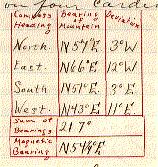 on four Card
Compass Heading | bearing of Mountain | Deviation
North. | N54°E. | 3°W
East. | N66°E. | 12°W.
South | N51°E. | 3°E.
West. | N43°E. | 11°E.
Sum of Bearings | 217°
Magnetic Bearing | N54¼°E